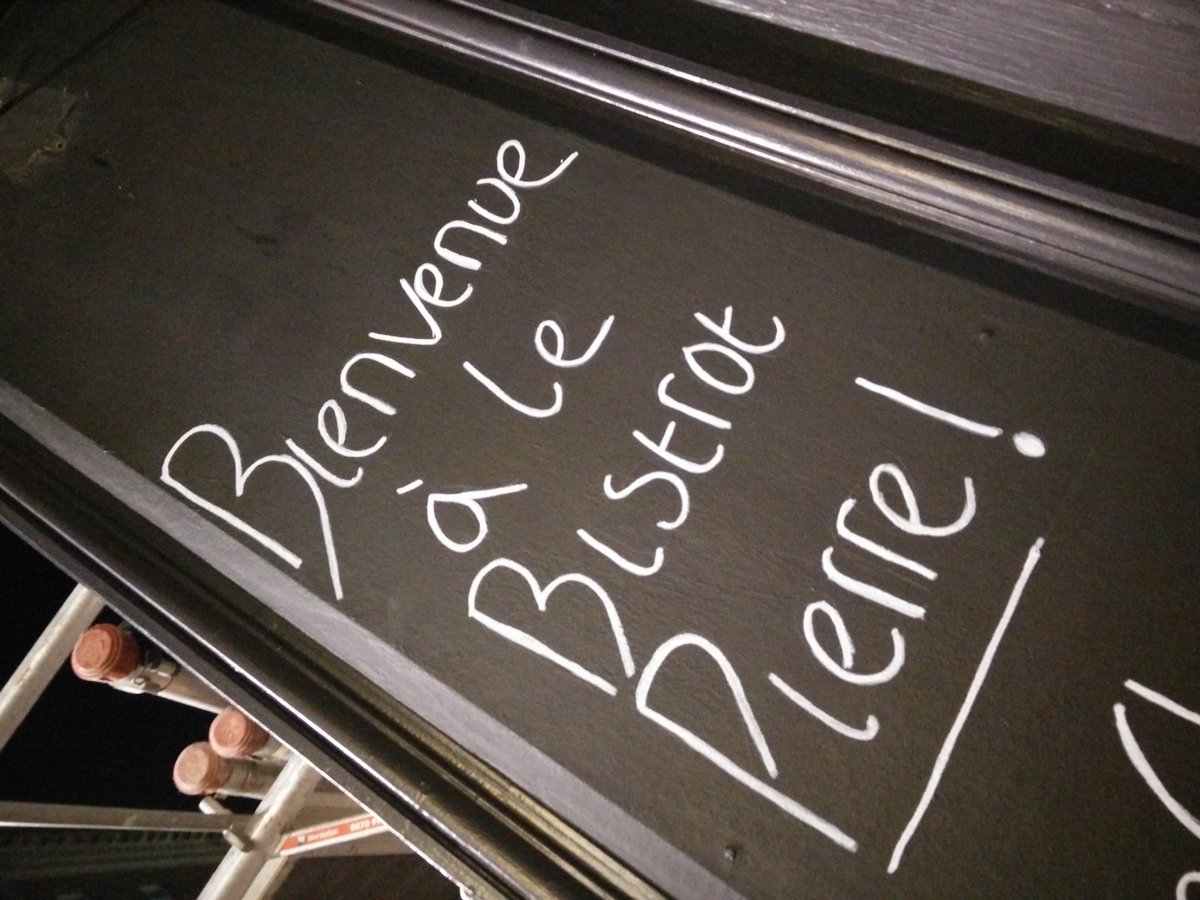 Bienvenue
à le
Bistrot
Pierre!